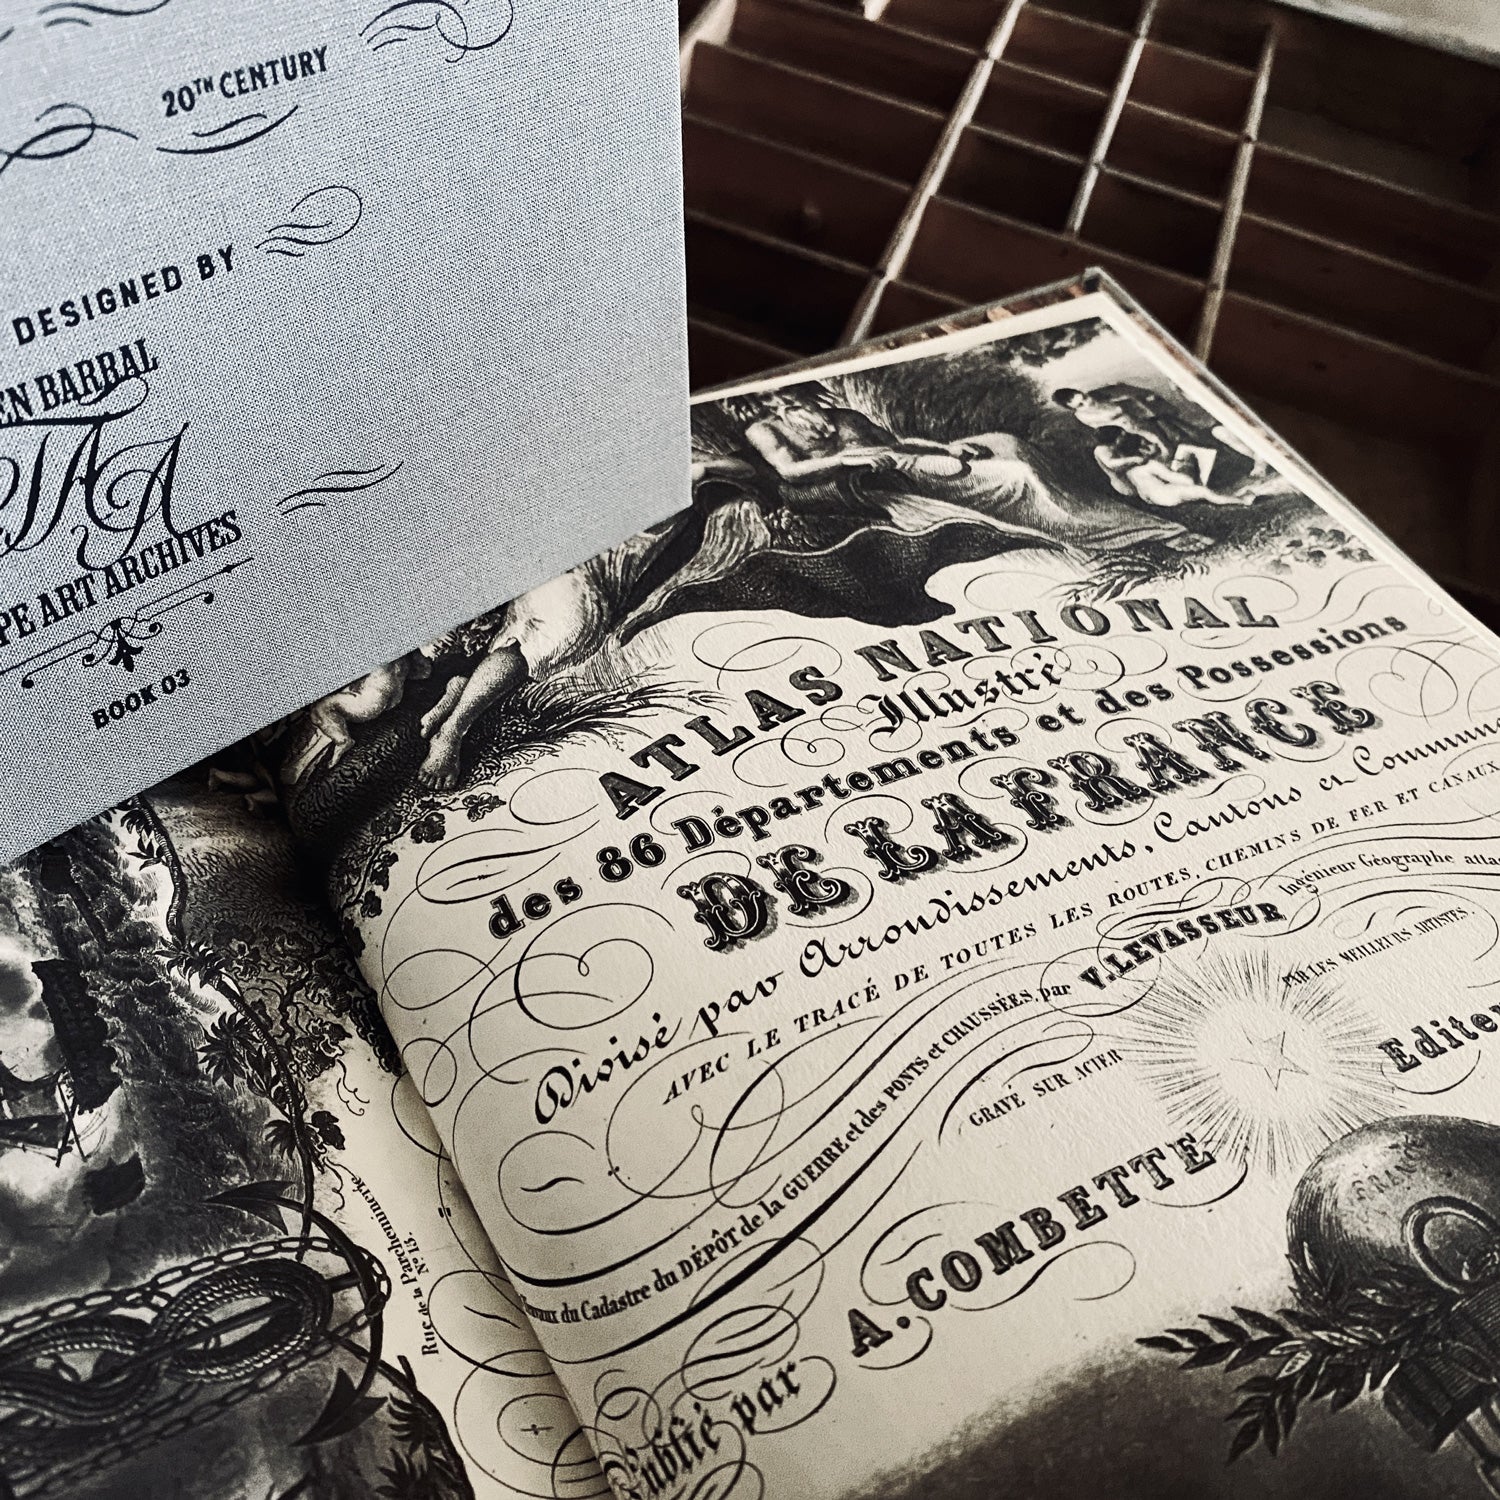 20TH CENTURY
DESIGNED BY
EN BARRAL
TAA
PE ART ARCHIVES
BOOK 03
ATLAS NATIONAL
Illustré
des 86 Départements et des Possessions
DE LA FRANCE
Divisé par Arrondissements, Cantons et Commun
AVEC LE TRACÉ DE TOUTES LES ROUTES, CHEMINS DE FER ET CANAUX
par V. LEVASSEUR Ingénieur Géographe atta
du Cadastre du DÉPÔT de la GUERRE et des PONTS et CHAUSSÉES,
GRAVÉ SUR ACIER PAR LES MEILLEURS ARTISTES.
Publié par A. COMBETTE Editeu
Rue de la Parcheminerie
No. 15.
FRANC